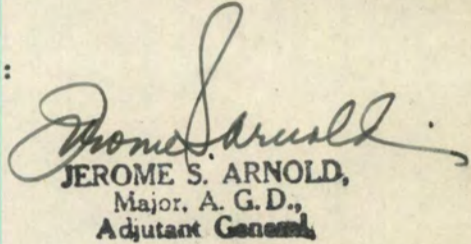 :
Jerome S. Arnold.
JEROME S. ARNOLD,
Major, A. G. D.,
Adjutant General